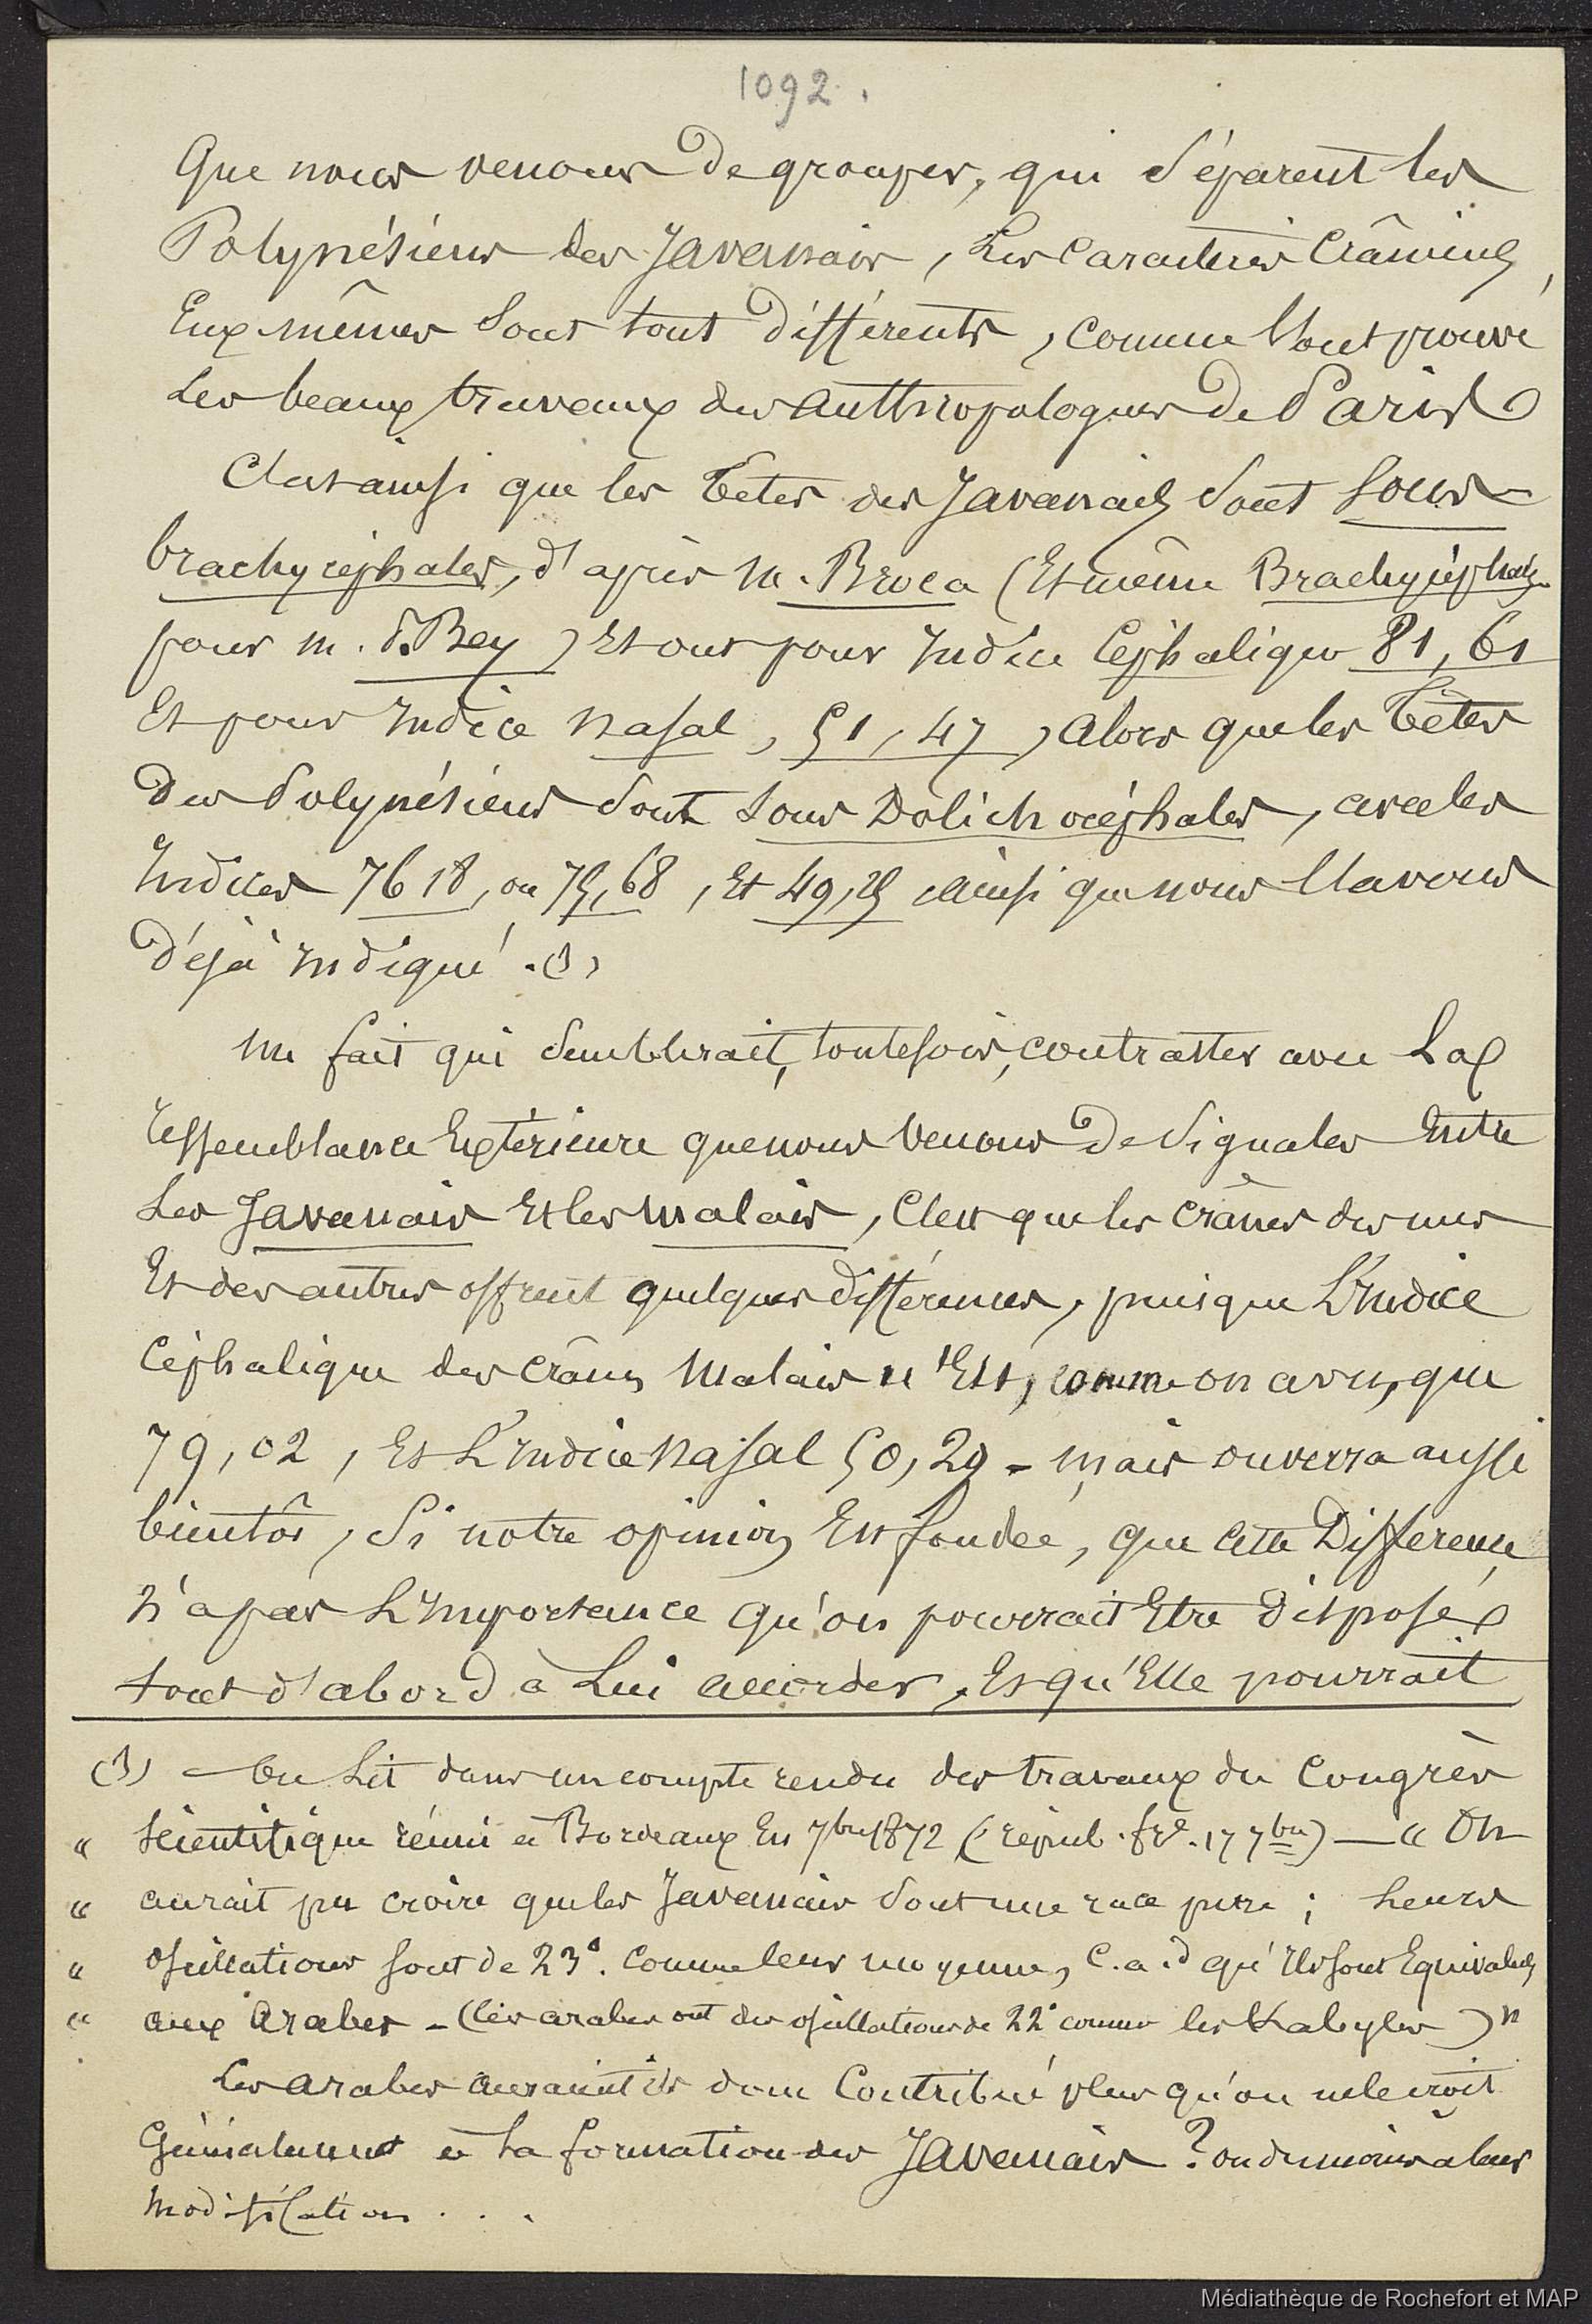 1092.
que nous venons de grouper, qui séparent les
Polynésiens des Javanais, les caractères crâniens,
eux-mêmes sont tout différents, comme l'ont prouvé
les beaux travaux des anthropologues de Paris
C'est ainsi que les têtes des Javanais sont sous-
brachycéphales, d'après M. Broca (et même Brachycéphales
pour M. d. Bey) et ont pour indice céphalique 81,61
et pour indice nasal, 51,47, alors que les têtes
des Polynésiens sont sous Dolichocéphales, avec les
indices 76 18, ou 75,68, et 49,25 ainsi que nous l'avons
déjà indiqué. (1)
un fait qui semblerait, toutefois, contraster avec la
ressemblance extérieure que nous venons de signaler entre
les Javanais et les malais, c'est que les crânes des uns
et des autres offrent quelques différences, puisque l'indice
céphalique des crânes malais n'est, comme on a vu, que
79,02, et l'indice nasal 50,20 - mais on verra aussi
bientôt, si notre opinion est fondée, que cette différence
n'a pas l'importance qu'on pourrait être disposé
tout d'abord à lui accorder, et qu'elle pourrait
(1) - On lit dans un compte rendu des travaux du Congrès
" scientifique réuni à Bordeaux en 7bre 1872 (répub. fse. 17 7bre) — " On
" aurait pu croire que les Javanais sont une race pure ; leurs
" oscillations sont de 23°. comme leur moyenne, c.a.d qu'ils sont équivalents
" aux arabes - (les arabes ont des oscillations de 22° comme les Kabyles) "
Les arabes auraient-ils donc contribué plus qu'on ne le croit
généralement à la formation des Javanais ? ou du moins à leur
modification . . .
Médiathèque de Rochefort et MAP